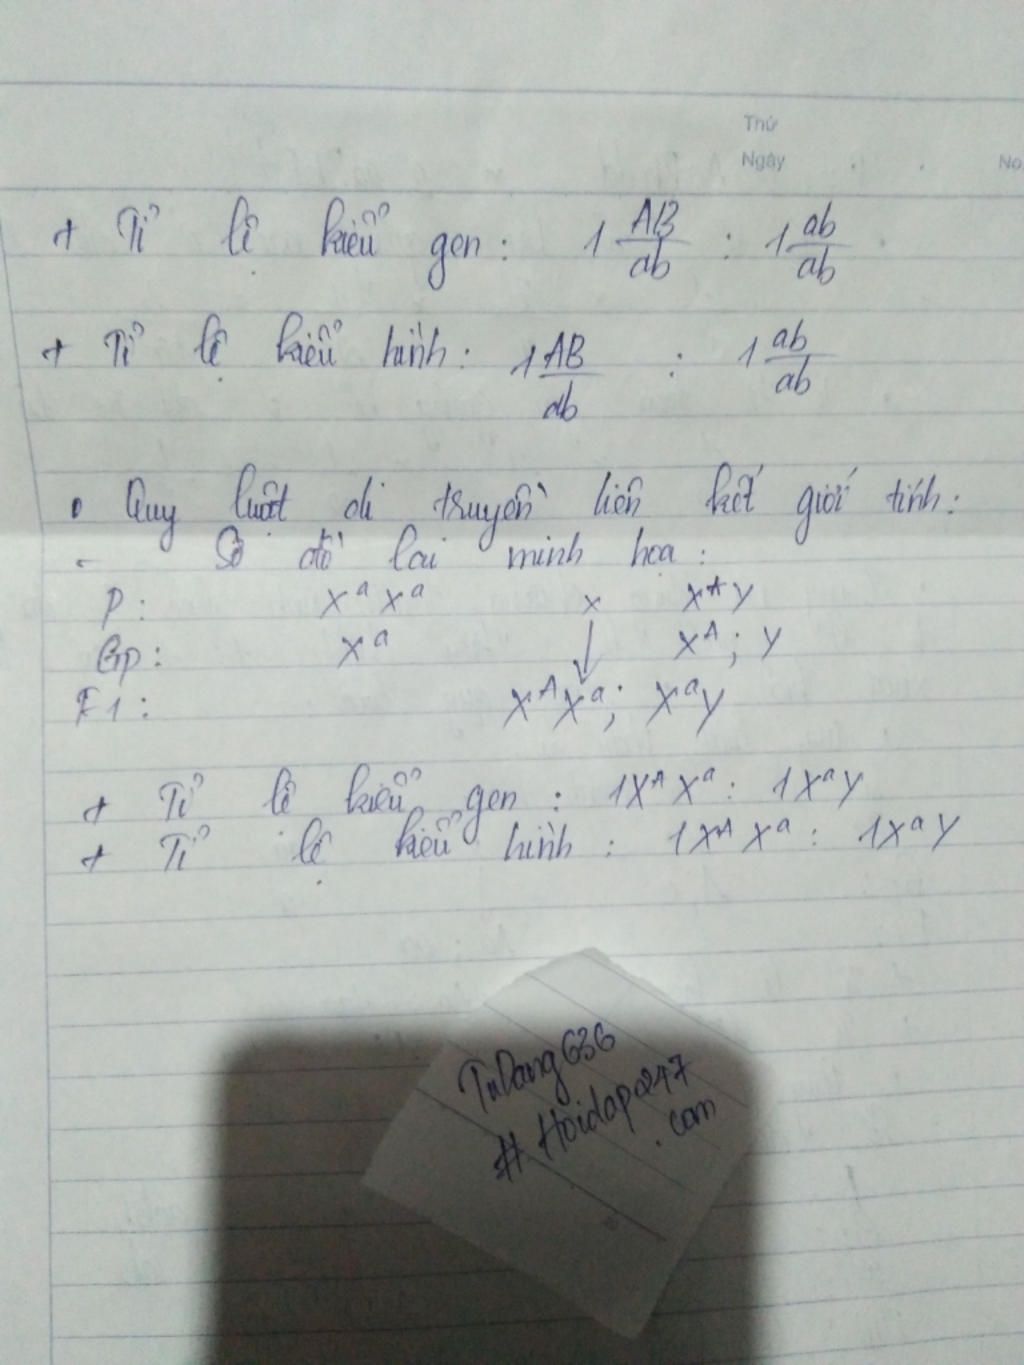 Thứ
Ngày . . No
+ Tỉ lệ kiểu gen : 1 AB/ab : 1 ab/ab
+ Tỉ lệ kiểu hình : 1 AB/ab : 1 ab/ab
• Quy luật di truyền liên kết giới tính :
- Sơ đồ lai minh họa :
P : XᵃXᵃ x XᴬY
Gp : Xᵃ Xᴬ ; Y
F1 : XᴬXᵃ ; XᵃY
+ Tỉ lệ kiểu gen : 1XᴬXᵃ : 1XᵃY
+ Tỉ lệ kiểu hình : 1XᴬXᵃ : 1XᵃY
TuDang636
# Hoidap247
.com